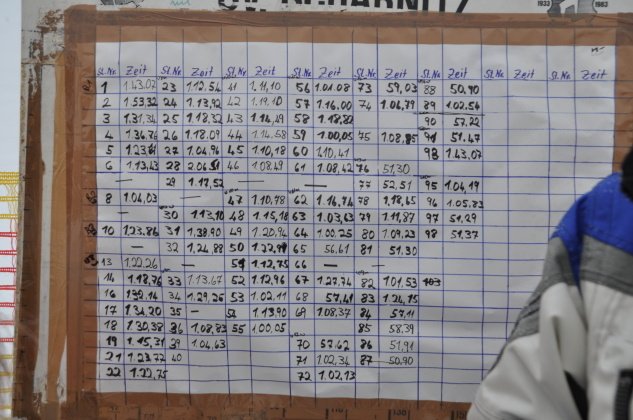 1933 1983
St.Nr. Zeit St.Nr. Zeit St.Nr. Zeit St.Nr. Zeit St.Nr. Zeit St.Nr. Zeit St.Nr. Zeit St.Nr. Zeit
1 1.43,02 23 1.12,54 41 1.11,10 56 1.01,08 73 59,03 88 50,90
2 1.53,32 24 1.13,92 42 1.19,10 57 1.16,00 74 1.06,79 89 1.02,54
3 1.31,34 25 1.18,32 43 1.14,49 58 1.18,82 90 57,22
4 1.34,76 26 1.18,09 44 1.14,58 59 1.00,05 75 1.08,85 91 51,47
5 1.23,81 27 1.04,96 45 1.10,18 60 1.10,41 93 1.43,07
6 1.13,43 28 2.06,51 46 1.08,49 61 1.08,42 76 51,30
— 29 1.17,52 — — 77 52,51 95 1.04,19
8 1.04,03 — 47 1.10,78 62 1.16,74 78 1.18,65 96 1.05,83
— 30 1.13,10 48 1.15,18 63 1.03,63 79 1.11,87 97 51,29
10 1.23,86 31 1.38,90 49 1.20,94 64 1.00,25 80 1.09,23 98 51,37
— 32 1.24,88 50 1.22,99 65 56,61 81 51,30
13 1.22,26 51 1.12,75 66 —
14 1.18,76 33 1.13,67 52 1.12,96 67 1.27,74 82 1.01,53 103
16 1.32,14 34 1.29,26 53 1.02,11 68 57,41 83 1.24,15
17 1.34,20 35 — 54 1.13,90 69 1.08,37 84 57,11
18 1.30,38 36 1.08,83 55 1.00,05 85 58,39
19 1.15,31 39 1.04,63 70 57,62 86 51,91
21 1.23,72 40 71 1.02,34 87 50,90
22 1.22,75 72 1.02,13